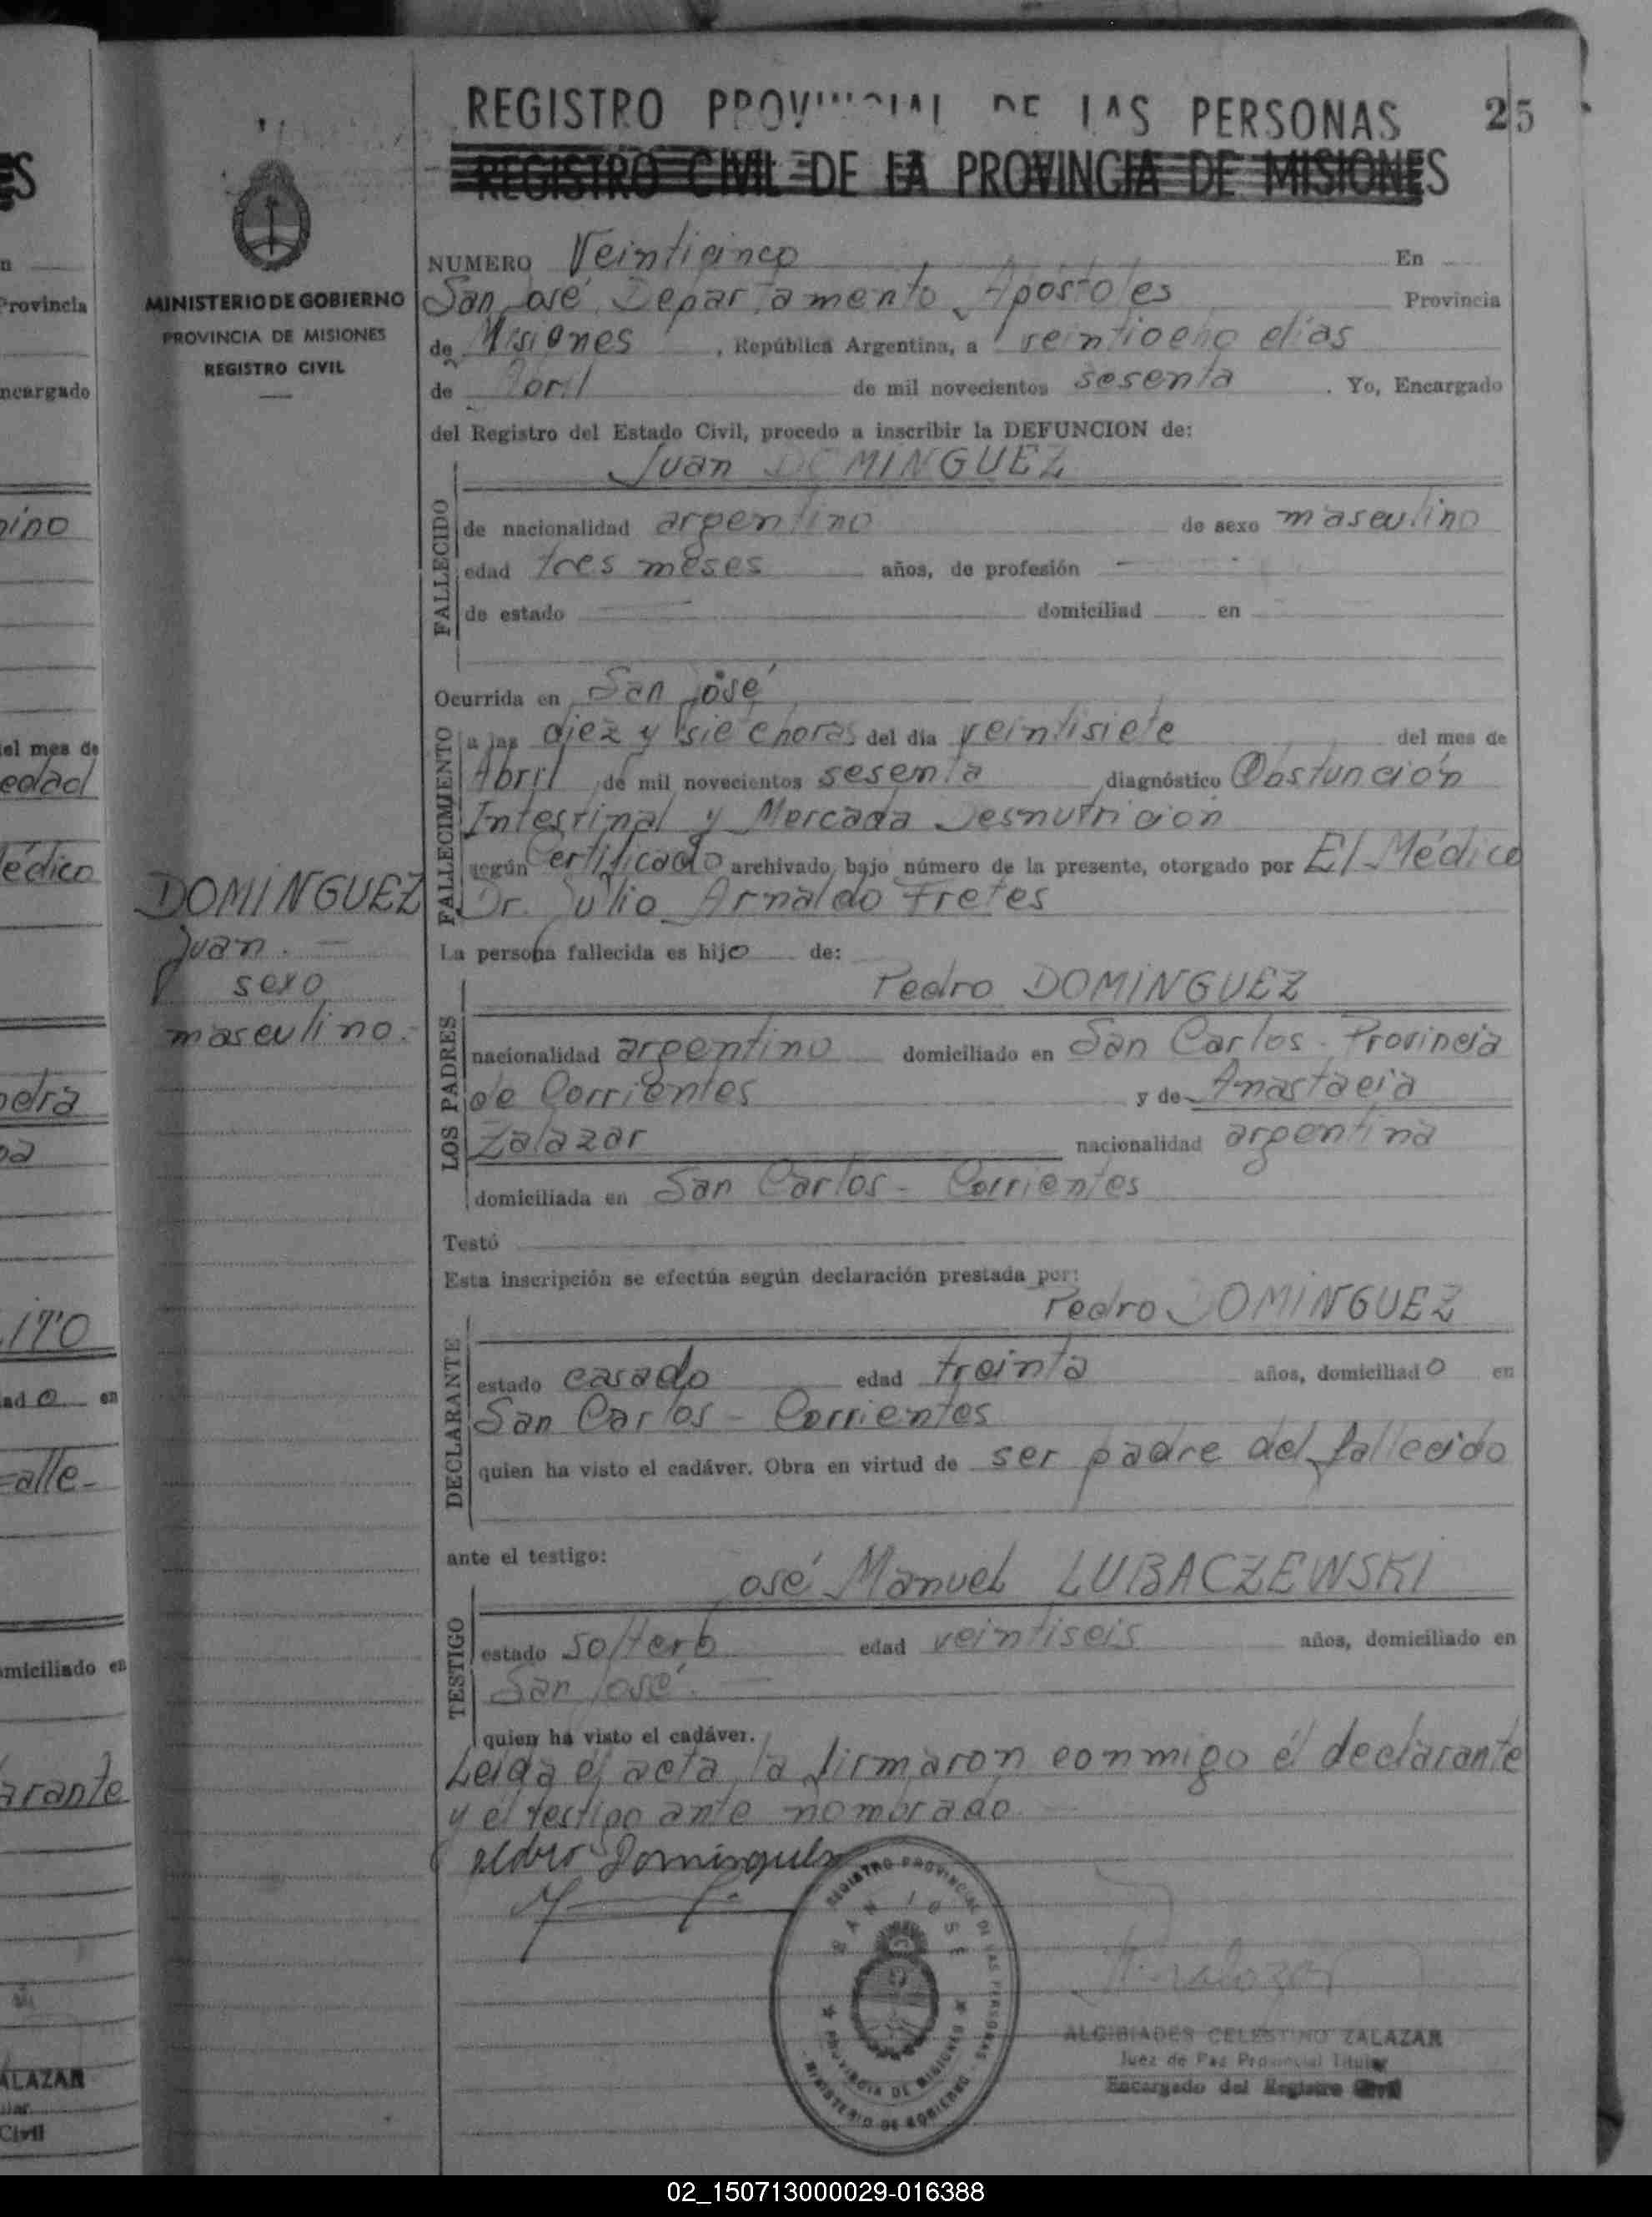 REGISTRO PROVINCIAL DE LAS PERSONAS 25
REGISTRO CIVIL DE LA PROVINCIA DE MISIONES
MINISTERIO DE GOBIERNO
PROVINCIA DE MISIONES
REGISTRO CIVIL
NUMERO Veinticinco En
San José Departamento Apóstoles Provincia
de Misiones, República Argentina, a veintiocho días
de Abril de mil novecientos sesenta. Yo, Encargado
del Registro del Estado Civil, procedo a inscribir la DEFUNCION de:
Juan DOMINGUEZ
FALLECIDO
de nacionalidad argentino de sexo masculino
edad tres meses años, de profesión
de estado domiciliad en
Ocurrida en San José
FALLECIMIENTO
a las diez y siete horas del día veintisiete del mes de
Abril de mil novecientos sesenta diagnóstico Obstunción
Intestinal y Mercada Desnutrición
según Certificado archivado bajo número de la presente, otorgado por El Médico
Dr. Julio Arnaldo Fretes
DOMINGUEZ
Juan. —
sexo
masculino.-
La persona fallecida es hijo de:
LOS PADRES
Pedro DOMINGUEZ
nacionalidad argentino domiciliado en San Carlos - Provincia
de Corrientes y de Anastacia
Zalazar nacionalidad argentina
domiciliada en San Carlos - Corrientes
Testó
Esta inscripción se efectúa según declaración prestada por:
DECLARANTE
Pedro DOMINGUEZ
estado casado edad treinta años, domiciliado en
San Carlos - Corrientes
quien ha visto el cadáver. Obra en virtud de ser padre del fallecido
ante el testigo:
TESTIGO
José Manuel LUBACZEWSKI
estado soltero edad veintiseis años, domiciliado en
San José. —
quien ha visto el cadáver.
Leida el acta, la firmaron conmigo el declarante
y el testigo ante nombrado
pedro Dominguez
REGISTRO PROVINCIAL DE LAS PERSONAS
SAN JOSE
PROVINCIA DE MISIONES
MINISTERIO DE GOBIERNO
ALCIBIADES CELESTINO ZALAZAR
Juez de Paz Provincial Titular
Encargado del Registro Civil
ES
Provincia
ncargado
el mes de
edad
édico
ITO
ado en
alle-
miciliado en
arante
ALAZAR
Civil
02_150713000029-016388